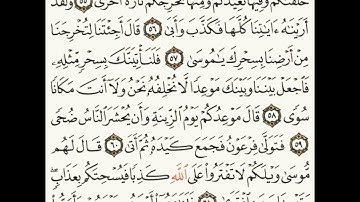 خَلَقْنَٰكُمْ وَفِيهَا نُعِيدُكُمْ وَمِنْهَا نُخْرِجُكُمْ تَارَةً أُخْرَىٰ ٥٥ وَلَقَدْ
أَرَيْنَٰهُ ءَايَٰتِنَا كُلَّهَا فَكَذَّبَ وَأَبَىٰ ٥٦ قَالَ أَجِئْتَنَا لِتُخْرِجَنَا
مِنْ أَرْضِنَا بِسِحْرِكَ يَٰمُوسَىٰ ٥٧ فَلَنَأْتِيَنَّكَ بِسِحْرٍ مِّثْلِهِۦ
فَٱجْعَلْ بَيْنَنَا وَبَيْنَكَ مَوْعِدًا لَّا نُخْلِفُهُۥ نَحْنُ وَلَآ أَنتَ مَكَانًا
سُوًى ٥٨ قَالَ مَوْعِدُكُمْ يَوْمُ ٱلزِّينَةِ وَأَن يُحْشَرَ ٱلنَّاسُ ضُحًى
٥٩ فَتَوَلَّىٰ فِرْعَوْنُ فَجَمَعَ كَيْدَهُۥ ثُمَّ أَتَىٰ ٦٠ قَالَ لَهُم
مُّوسَىٰ وَيْلَكُمْ لَا تَفْتَرُوا۟ عَلَى ٱللَّهِ كَذِبًا فَيُسْحِتَكُم بِعَذَابٍ